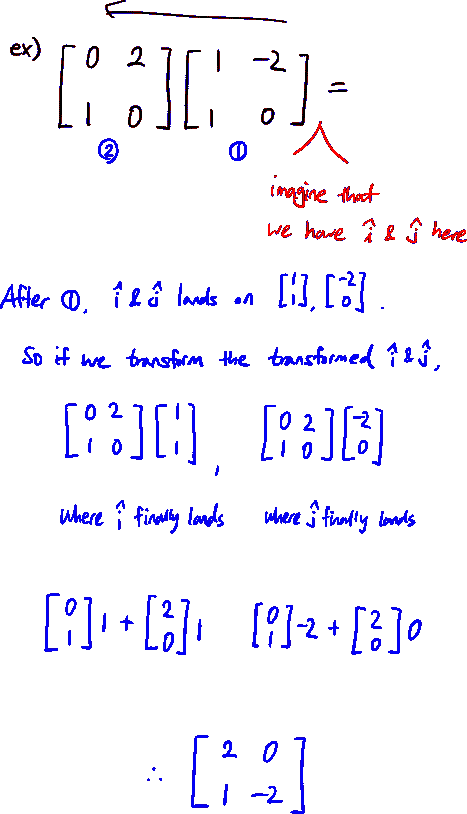 ex) [0 2; 1 0] [1 -2; 1 0] =
② ①
imagine that
we have î & ĵ here
After ①, î & ĵ lands on [1; 1], [-2; 0].
So if we transform the transformed î & ĵ,
[0 2; 1 0] [1; 1], [0 2; 1 0] [-2; 0]
where î finally lands where ĵ finally lands
[0; 1] 1 + [2; 0] 1 [0; 1] -2 + [2; 0] 0
∴ [2 0; 1 -2]